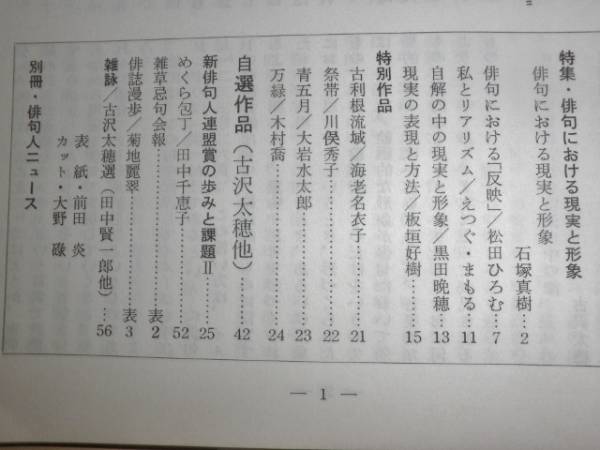 特集・俳句における現実と形象
俳句における現実と形象
石塚真樹…2
俳句における「反映」／松田ひろむ…7
私とリアリズム／えつぐ・まもる…11
自解の中の現実と形象／黒田晩穂…13
現実の表現と方法／板垣好樹…15
特別作品
古利根流域／海老名衣子…21
祭帯／川俣秀子…22
青五月／大岩水太郎…23
万緑／木村喬…24
自選作品（古沢太穂他）…42
新俳句人連盟賞の歩みと課題Ⅱ…25
めくら包丁／田中千恵子…52
雑草忌句会報…表2
俳誌漫歩／菊地麗翠…表3
雑詠／古沢太穂選（田中賢一郎他）…56
表紙・前田 炎
カット・大野 磤
別冊・俳句人ニュース
— 1 —